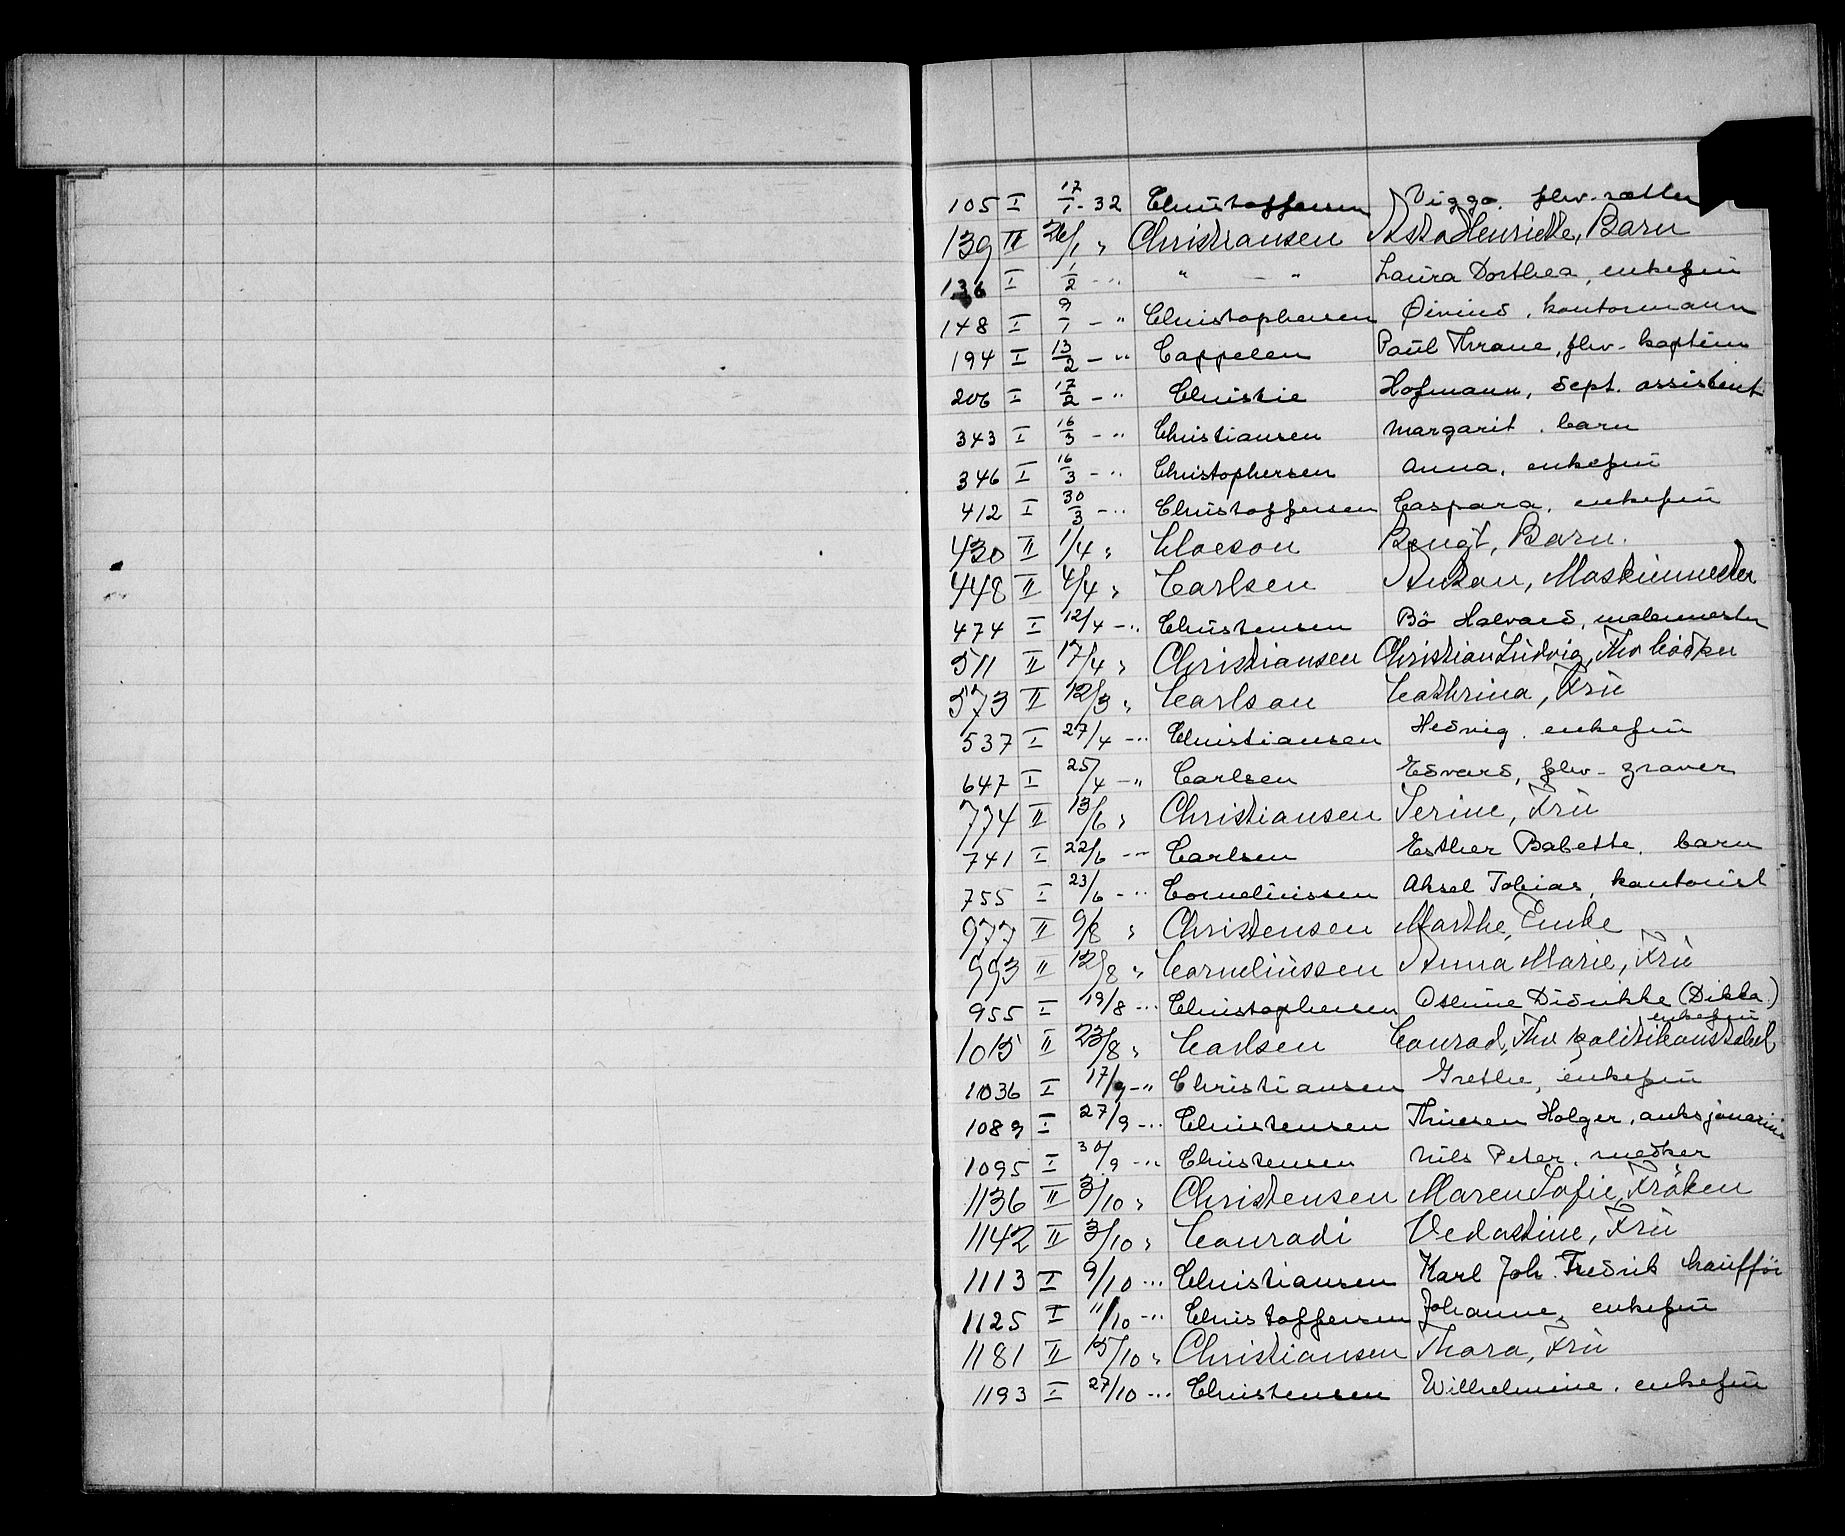 105 I 17/1 - 32 Christoffersen Viggo. fhv. sætter
139 II 26/1 " Christiansen Asta Henriette, Barn
136 I 1/2 - " " - " Laura Dorthea, enkefrü
148 I 9/1 - " Christophersen Øivind. kontormann
194 I 13/2 - " Cappelen Paul Thrane, fhv. kaptein
206 I 17/2 - " Christie Hofmann, sept. assistent
343 I 16/3 - " Christiansen Margarit. barn
346 I 16/3 - " Christophersen Anna, enkefrü
412 I 30/3 - " Christoffersen Caspara, enkefrü
430 II 1/4 " Claeson Bengt, Barn.
448 II 4/4 " Carlsen Anton, Maskinmester
474 I 12/4 - " Christensen Bö Halvard, malermester
511 II 17/4 " Christiansen Christian Ludvig, Fhv
573 II 12/3 " Carlson Cathrina, Frü
537 I 27/4 - " Christiansen Hedvig. enkefrü
647 I 25/4 - " Carlsen Edvard, fhv. graver
774 II 13/6 " Christiansen Serine, Frü
741 I 22/6 - " Carlsen Esther Babette. barn
755 I 23/6 - " Corneliussen Aksel Tobias, kontorist
977 II 9/8 " Christensen Marthe, Enke
993 II 12/8 " Corneliussen Anna Marie, Frü
955 I 19/8 - " Christophersen Oseline Didrikke (Dikka)
enkefrü
1015 II 23/8 " Carlsen Conrad, Fhv politikonstabel
1036 I 17/9 - " Christiansen Grethe, enkefrü
1089 I 27/9 - " Christensen Thiesen Holger, auksjonarius
1095 I 30/9 - " Christensen Nils Peter. snedker
1136 II 3/10 " Christensen Maren Sofie, Fröken
1142 II 3/10 " Conradi Vedastine, Frü
1113 I 9/10 - " Christiansen Karl Joh. Fredrik chaufför
1125 I 11/10 - " Christoffersen Johanne, enkefrü
1181 II 15/10 " Christiansen Thora, Frü
1193 I 27/10 - " Christensen Wilhelmine. enkefrü